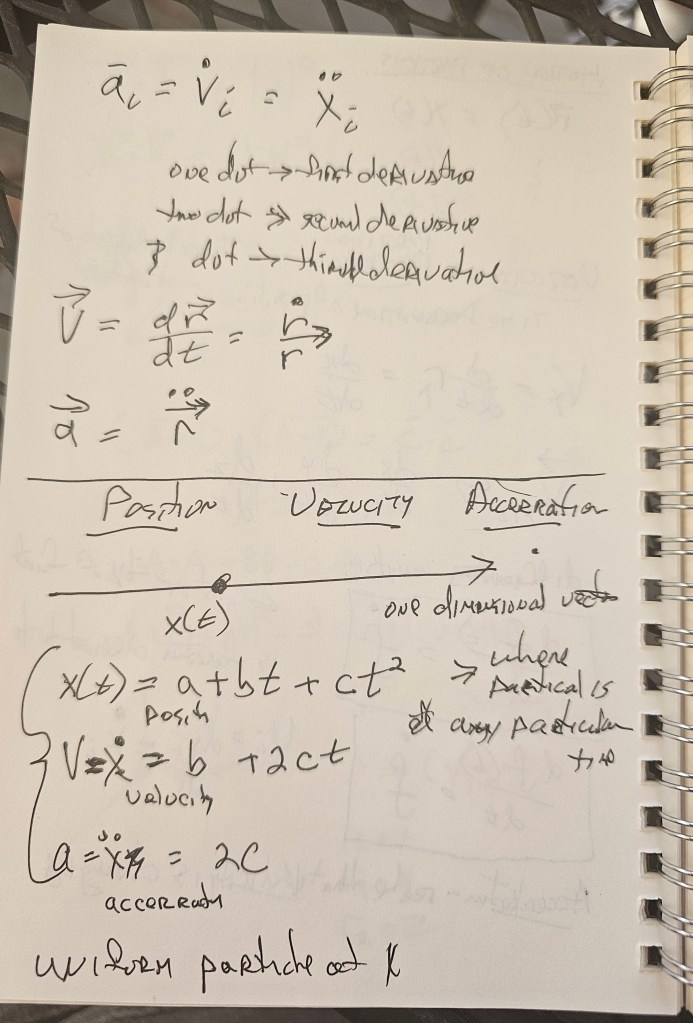 ā_i = v̇_i = ẍ_i
one dot → first derivative
two dot → second derivative
3 dot → third derivative
v⃗ = dr⃗/dt = ṙ/r⃗
a⃗ = r̈⃗
Position Velocity Acceration
x(t)
one dimensional
x(t) = a + bt + ct² → where
partical is
at any particular
posith
V = ẋ = b + 2ct
velocity
a = ẍ = 2c
uniform particle at x